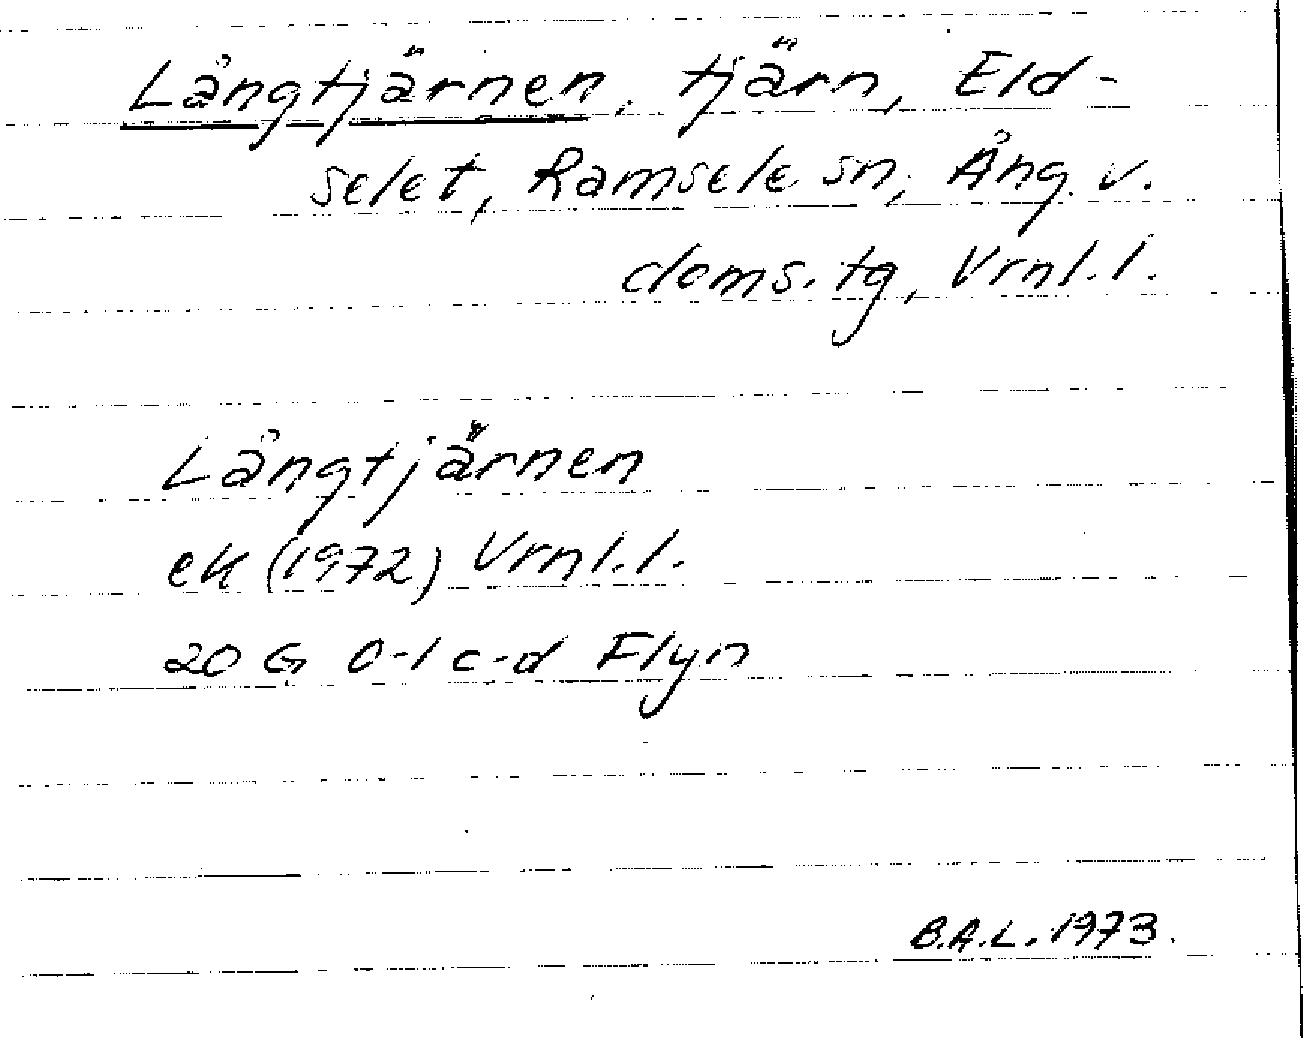 Långtjärnen, tjärn, Eld-
selet, Ramsele sn, Ång. v.
doms. tg, Vrnl. l.
Långtjärnen
ek (1972) Vrnl. l.
20 G 0-1 c-d Flyn
B.A.L. 1973.